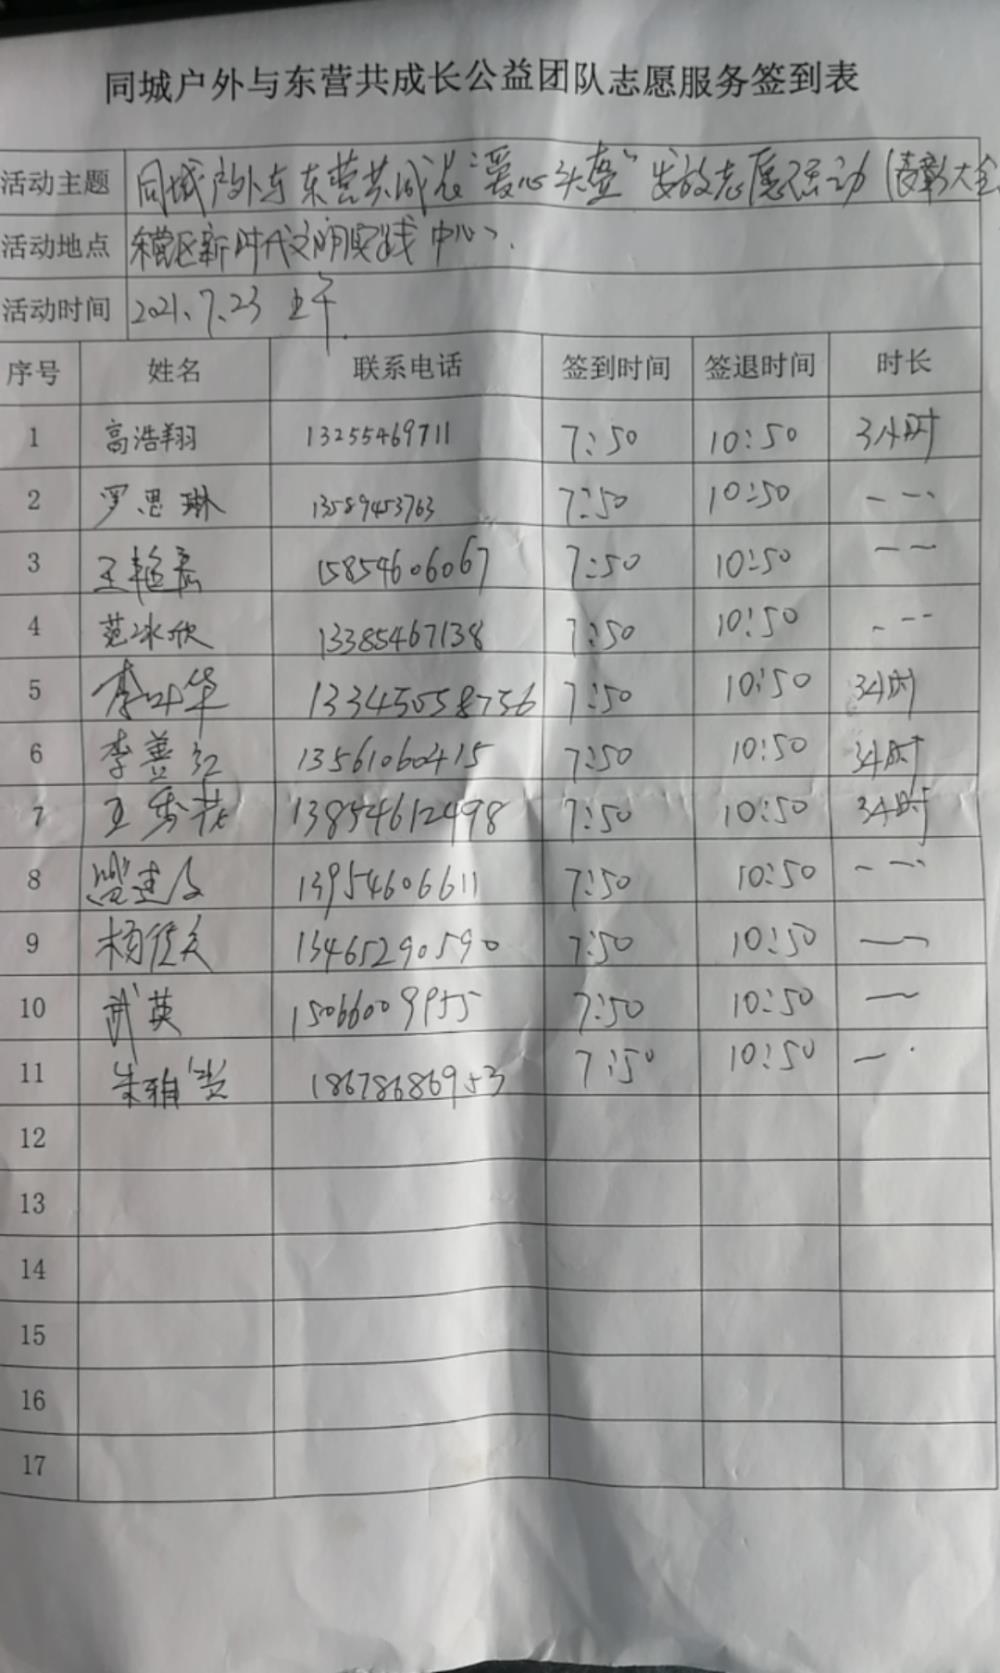 同城户外与东营共成长公益团队志愿服务签到表
活动主题 同城户外与东营共成长“爱心头盔”发放志愿活动（表彰大会
活动地点 东营区新时代文明实践中心
活动时间 2021.7.23 上午
序号 姓名 联系电话 签到时间 签退时间 时长
1 高浩翔 13255469711 7:50 10:50 3小时
2 罗思琳 13589453763 7:50 10:50 ---
3 王艳 15854606067 7:50 10:50 --
4 范冰欣 13385467138 7:50 10:50 ---
5 李叶华 133450558756 7:50 10:50 3小时
6 李善红 13561060415 7:50 10:50 3小时
7 王秀花 13854612498 7:50 10:50 3小时
8 13954606611 7:50 10:50 ---
9 杨 13465290590 7:50 10:50 —
10 武英 15066009955 7:50 10:50 —
11 朱雅 18678686953 7:50 10:50 —
12
13
14
15
16
17